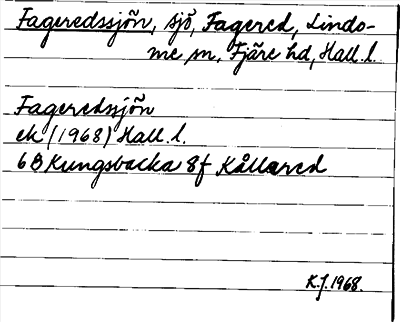 Fageredssjön, sjö, Fagered, Lindo-
me sn, Fjäre hd, Hall. l.
Fageredsjön
ek (1968) Hall. l.
6B Kungsbacka 8f Kållered
K.J. 1968.